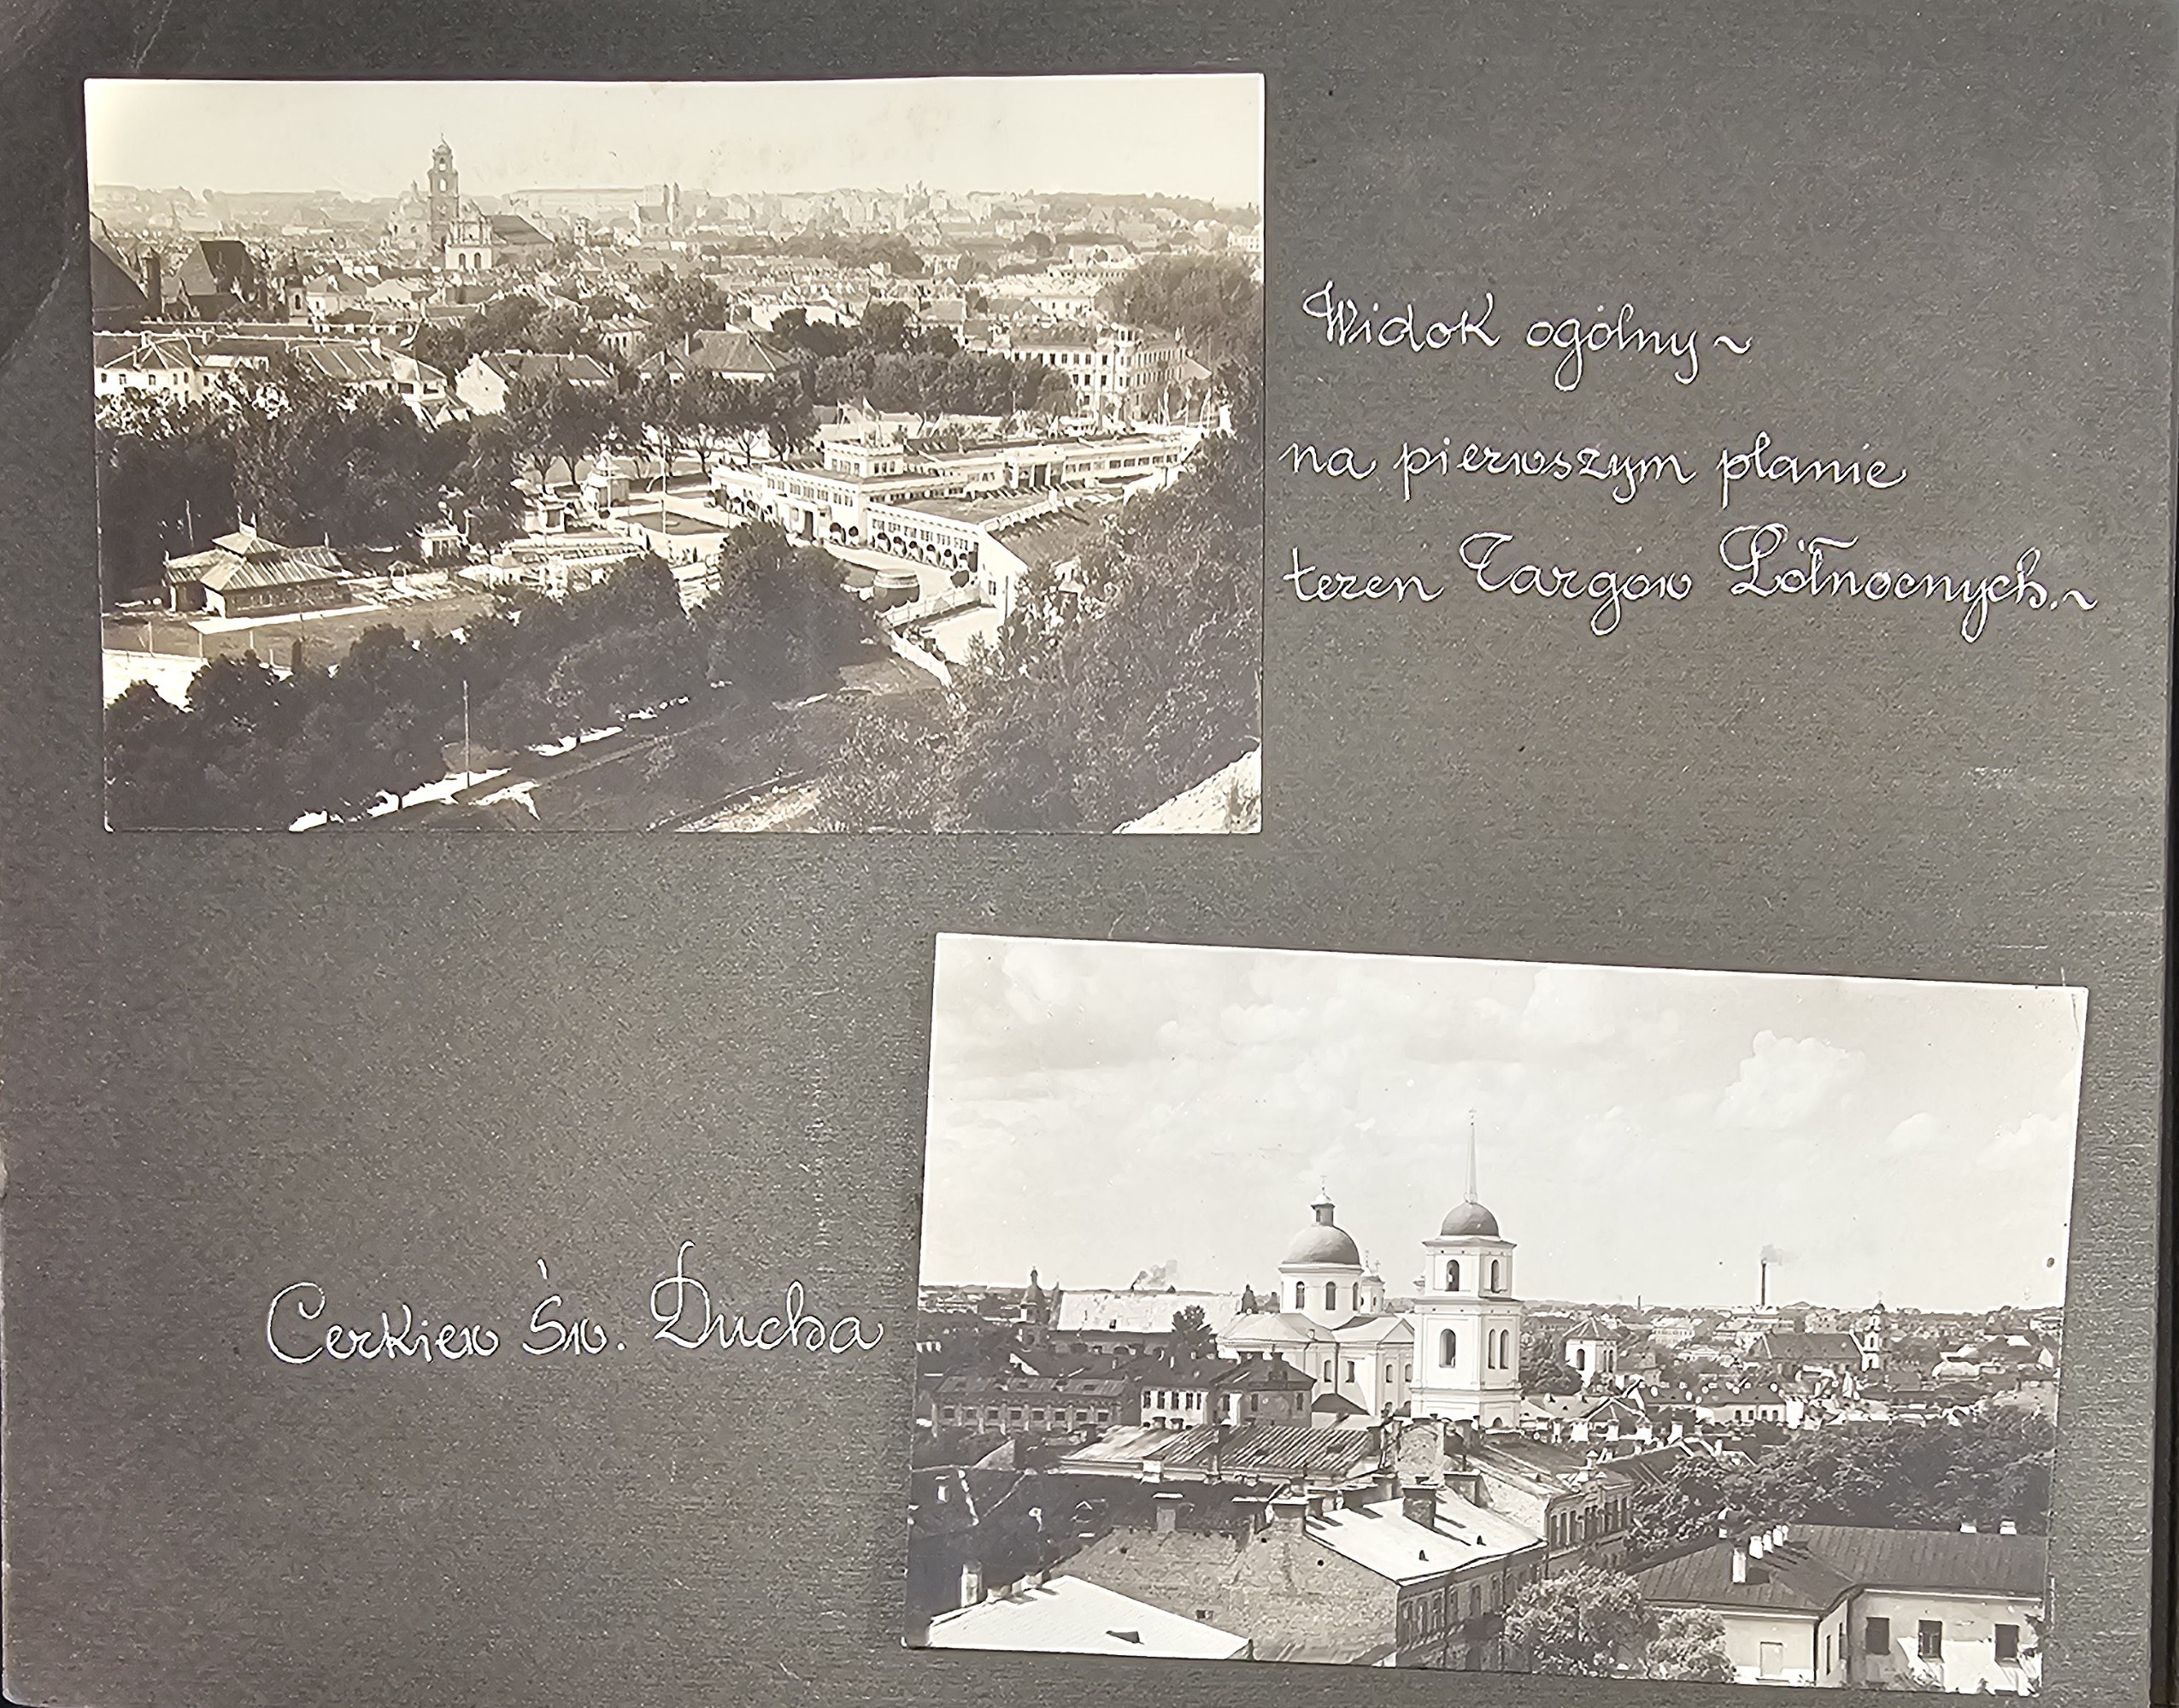 Widok ogólny ~
na pierwszym planie
teren Targów Północnych. ~
Cerkiew Św. Ducha